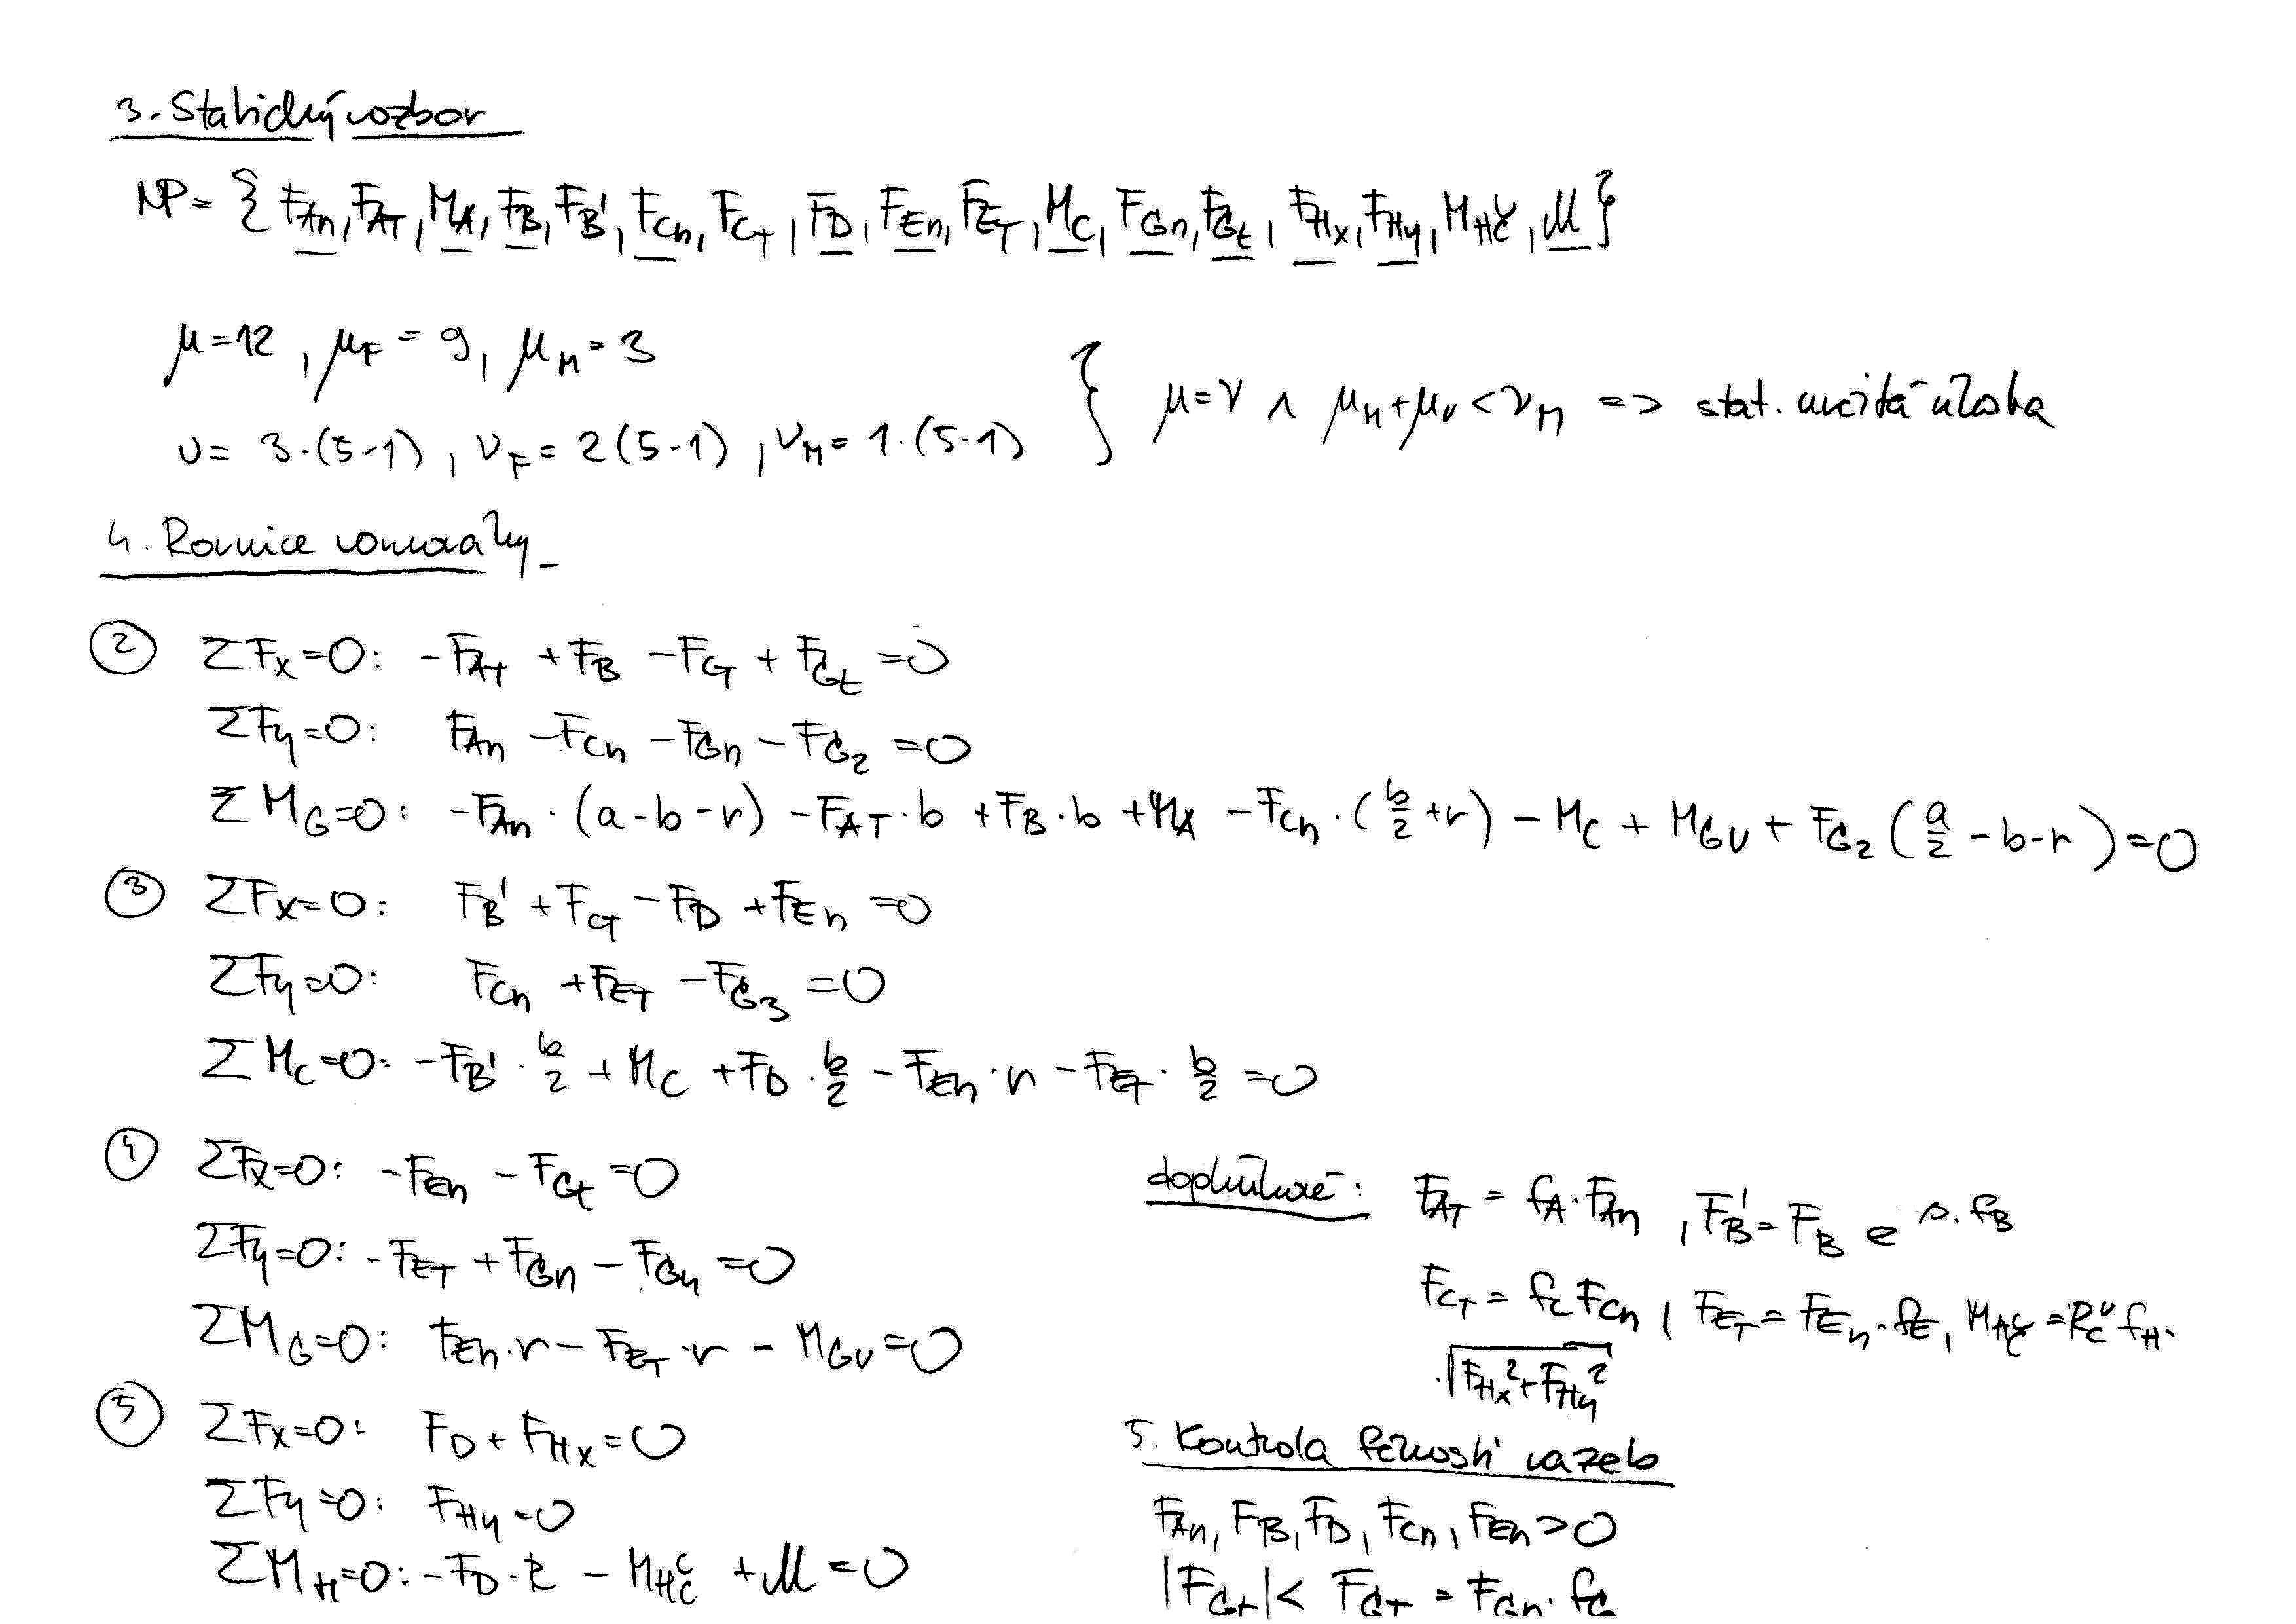 3. Statický rozbor
NP = { F_An, F_AT, M_A, F_B, F_B', F_Cn, F_CT, F_D, F_En, F_ET, M_C, F_Gn, F_Gt, F_Hx, F_Hy, M_HČ, M }
μ = 12, μ_F = 9, μ_M = 3
ν = 3·(5-1), ν_F = 2(5-1), ν_M = 1·(5-1) } μ = ν ∧ μ_M + μ_r < ν_M => stat. určitá úloha
4. Rovnice rovnováhy
② ΣFx=0: -F_AT + F_B - F_CT + F_Gt = 0
ΣFy=0: F_An - F_Cn - F_Gn - F_G2 = 0
ΣM_G=0: -F_An · (a-b-r) - F_AT · b + F_B · b + M_A - F_Cn · (b/2 + r) - M_C + M_GV + F_G2 (a/2 - b-r) = 0
③ ΣFx=0: F_B' + F_CT - F_D + F_En = 0
ΣFy=0: F_Cn + F_ET - F_G3 = 0
ΣM_C=0: -F_B' · b/2 + M_C + F_D · b/2 - F_En · r - F_ET · b/2 = 0
④ ΣFx=0: -F_En - F_Gt = 0
ΣFy=0: -F_ET + F_Gn - F_G4 = 0
ΣM_G=0: F_En · r - F_ET · r - M_GV = 0
⑤ ΣFx=0: F_D + F_Hx = 0
ΣFy=0: F_Hy = 0
ΣM_H=0: -F_D · R - M_HČ + M = 0
doplňkové: F_AT = f_A · F_An, F_B' = F_B e^{α·f_B}
F_CT = f_C F_Cn, F_ET = F_En · f_E, M_HČ = R_Č f_H ·
· √(F_Hx² + F_Hy²)
5. Kontrola fčnosti vazeb
F_An, F_B, F_D, F_Cn, F_En > 0
|F_Gt| < F_GT = F_Gn · f_G